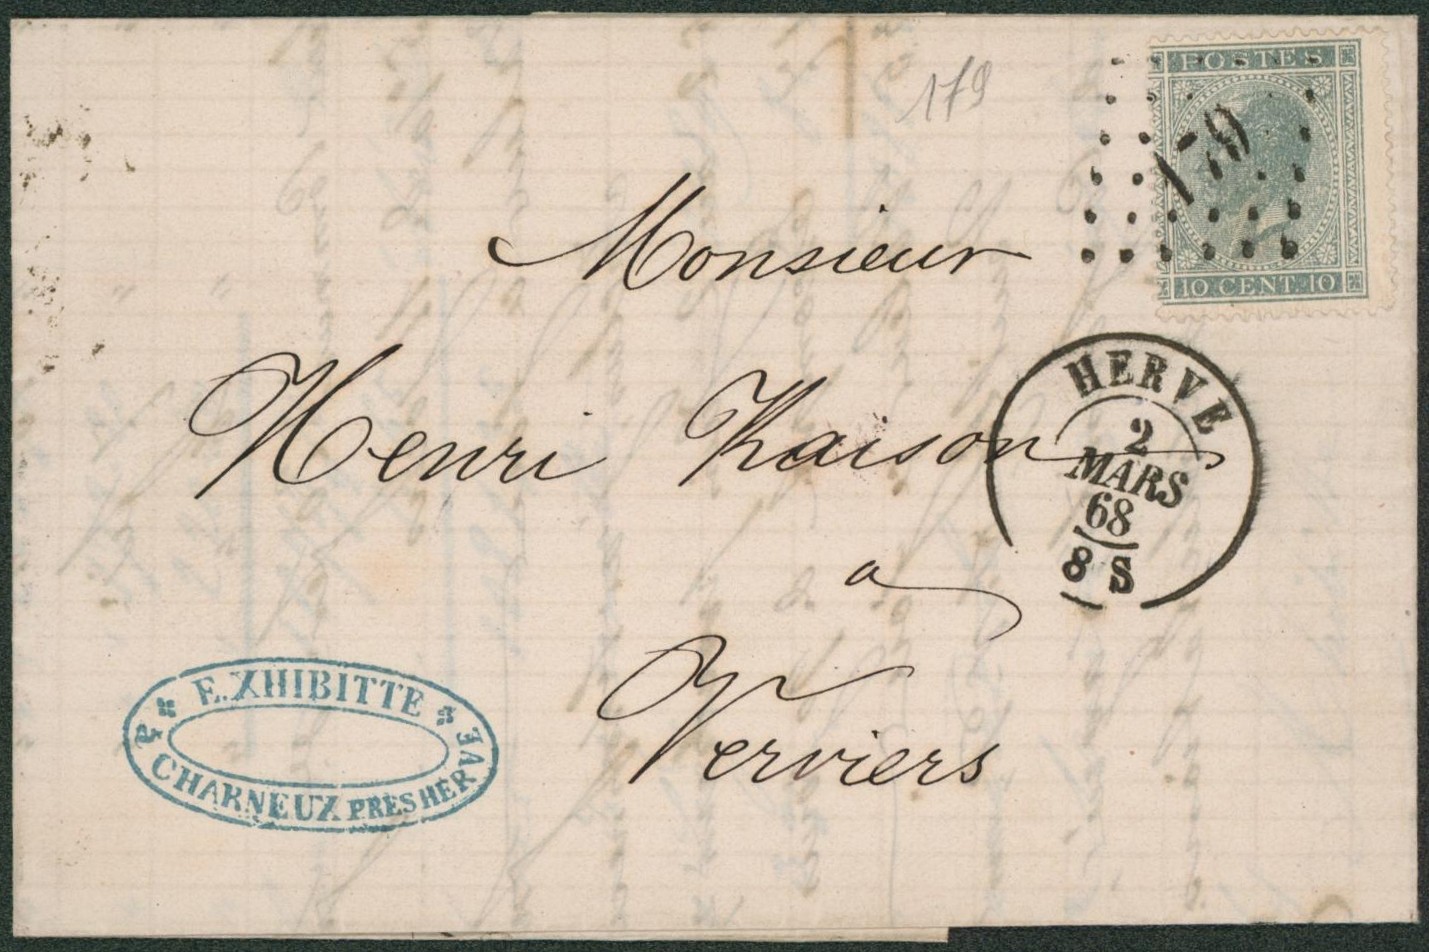 179
POSTES
179
10 CENT. 10
Monsieur
Henri Raison
HERVE
2
MARS
68
8 S
a
Verviers
E. XHIBITTE
à CHARNEUX PRES HERVE